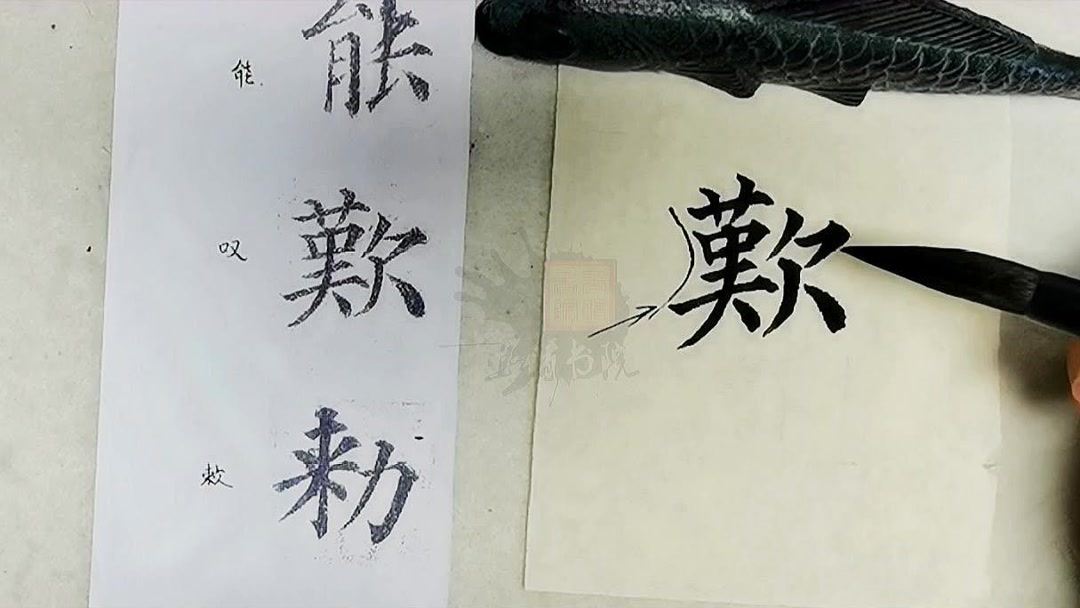 能 能
叹 歎
敕 勑
歎
书院